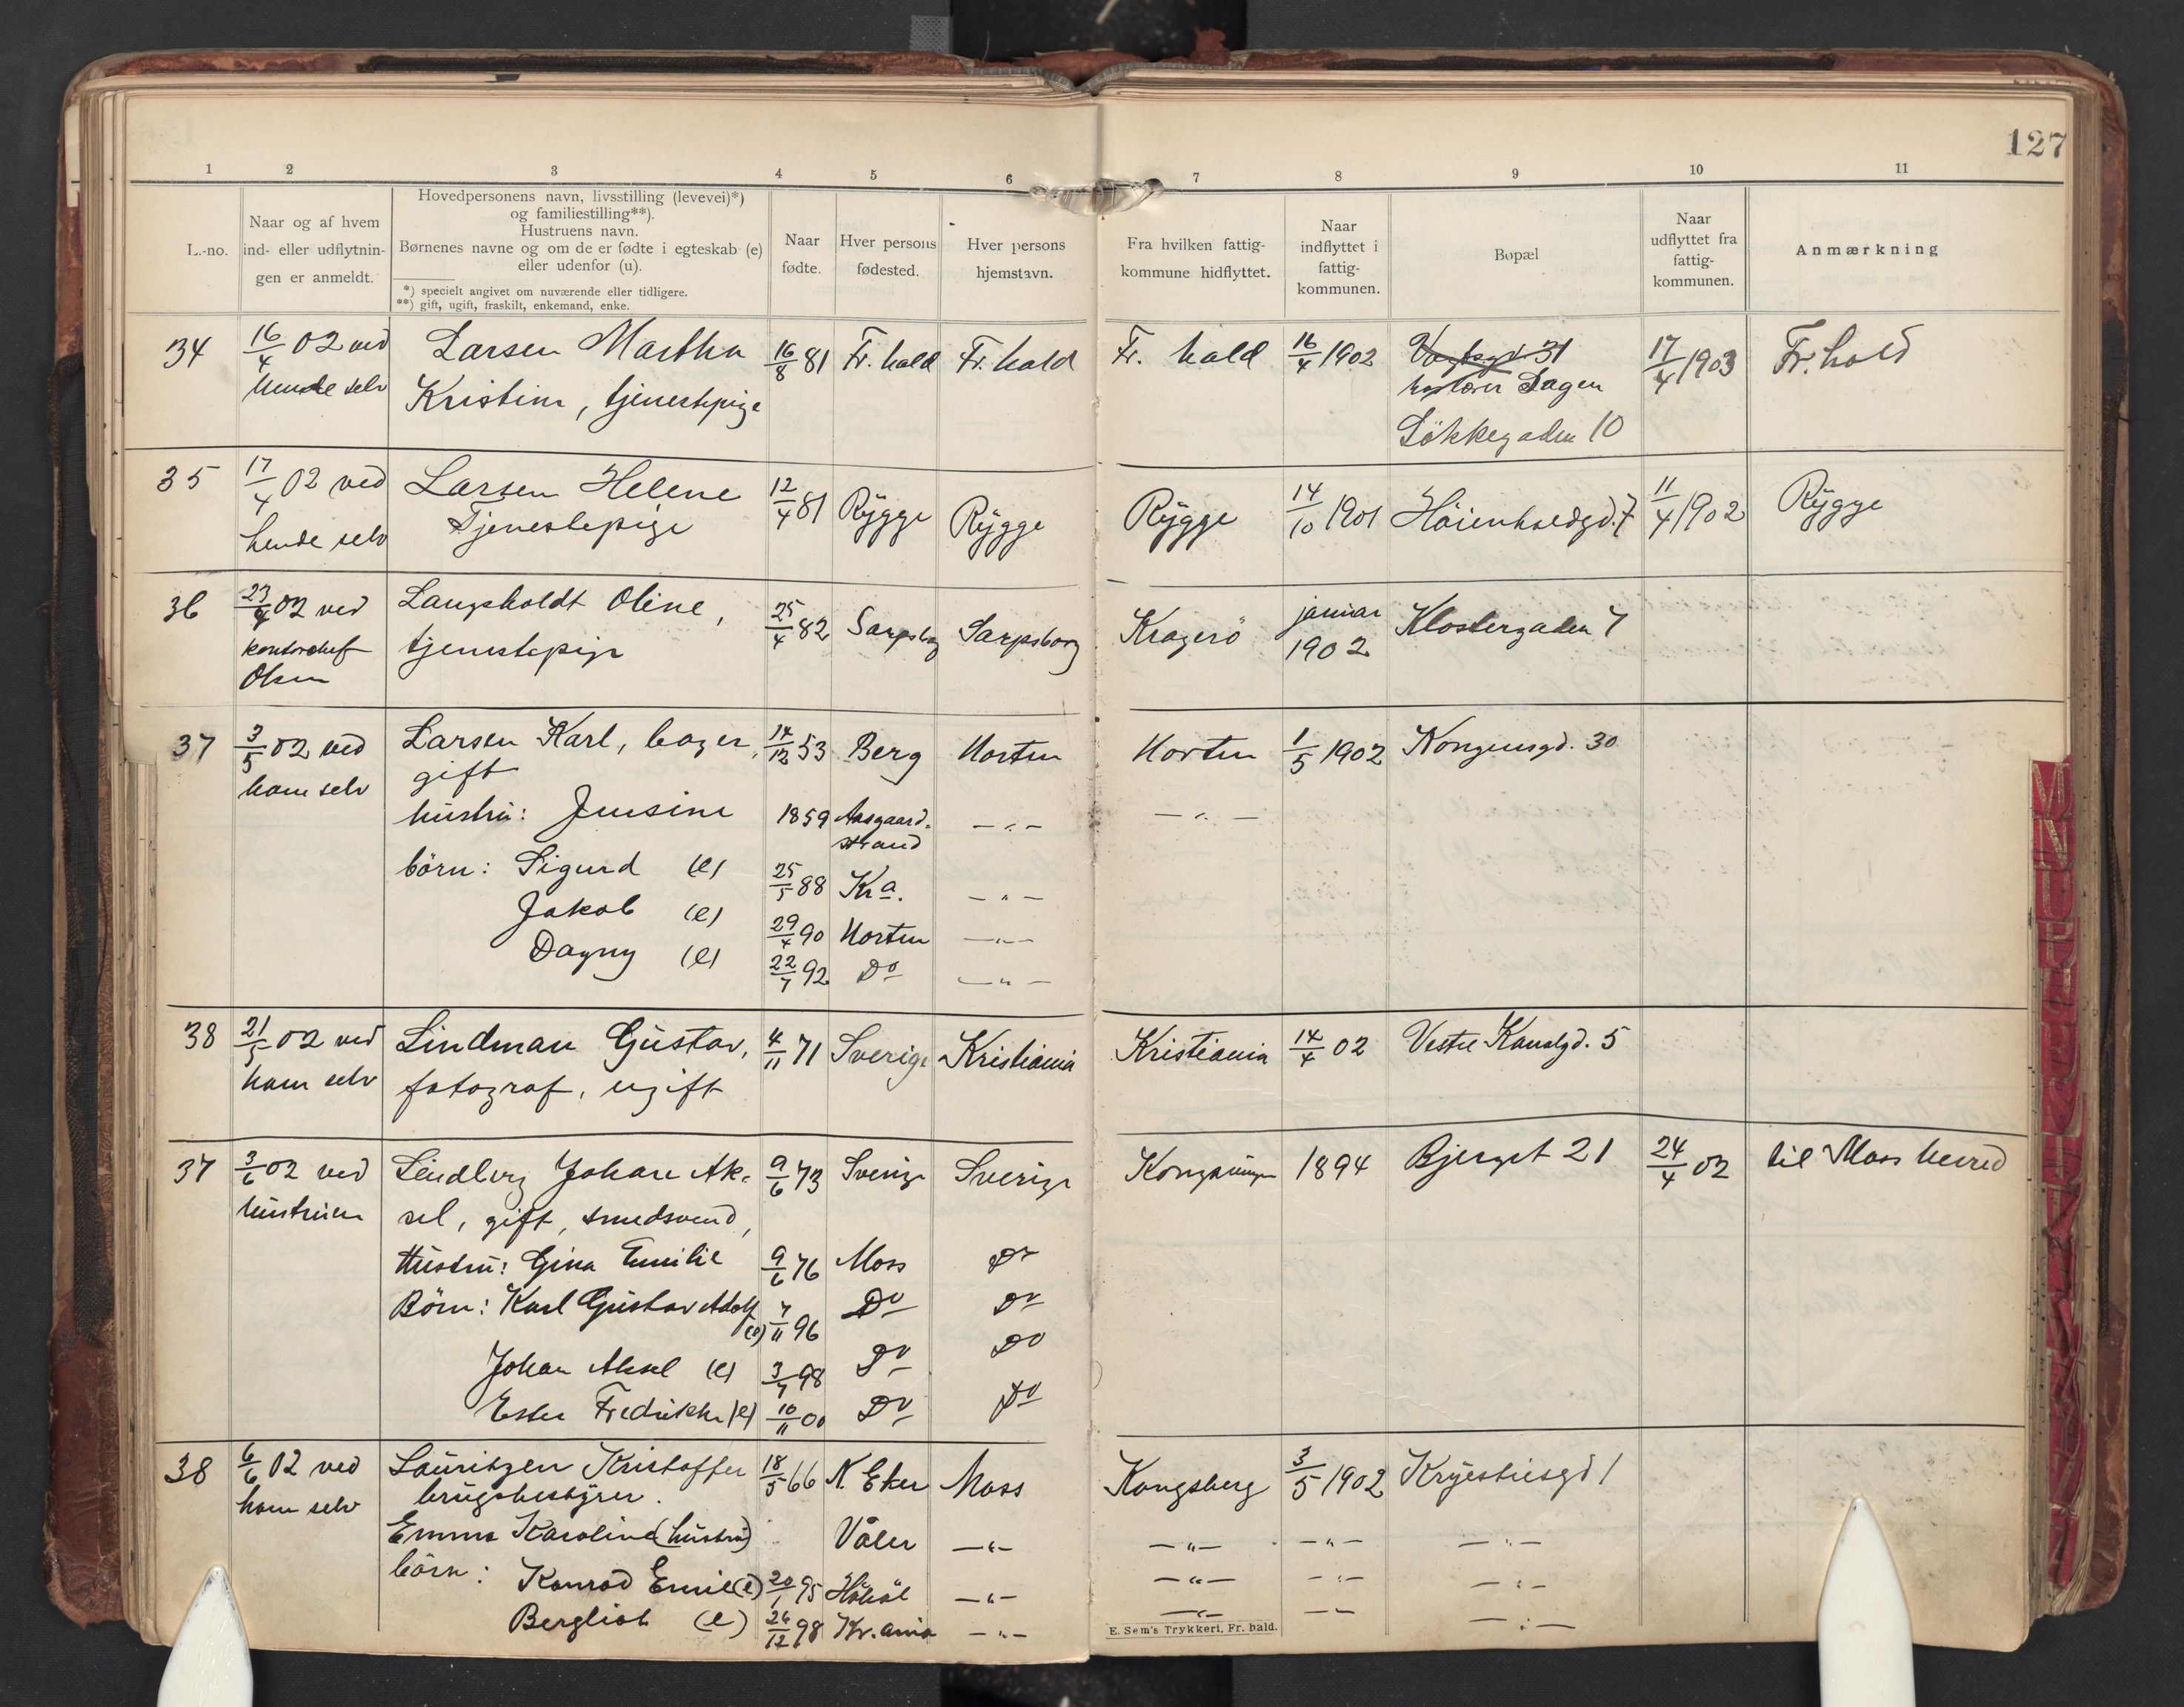 127
1 2 3 4 5 6 7 8 9 10 11
L.-no.
Naar og af hvem
ind- eller udflytnin-
gen er anmeldt.
Hovedpersonens navn, livsstilling (levevei)*)
og familiestilling**).
Hustruens navn.
Børnenes navne og om de er fødte i egteskab (e)
eller udenfor (u).
*) specielt angivet om nuværende eller tidligere.
**) gift, ugift, fraskilt, enkemand, enke.
Naar
fødte.
Hver persons
fødested.
Hver persons
hjemstavn.
Fra hvilken fattig-
kommune hidflyttet.
Naar
indflyttet i
fattig-
kommunen.
Bopæl
Naar
udflyttet fra
fattig-
kommunen.
Anmærkning
34 16/4 02 ved Larsen Martha 16/8 81 Fr. hald Fr. hald Fr. hald 16/4 1902 31 17/4 1903 Fr. hald
hende selv Kristine, tjenestepige Dagen
Løkkegaden 10
35 17/4 02 ved Larsen Helene 12/4 81 Rygge Rygge Rygge 14/10 1901 Høienholdgd. 7 11/4 1902 Rygge
hende selv Tjenestepige
36 23/4 02 ved Langsholdt Oline, 25/4 82 Sarpsborg Sarpsborg Kragerö januar Klostergaden 7
kontorchef tjenestepige 1902
Olsen
37 3/5 02 ved Larsen Karl, bager, 14/12 53 Berg Horten Horten 1/5 1902 Kongensgd. 30
ham selv gift
hustru: Jensine 1859 Aasgaard- — " — — " —
strand
börn: Sigurd (e) 25/5 88 Kra. — " —
Jakob (e) 29/4 90 Horten — " —
Dagny (e) 22/7 92 Do — " —
38 21/5 02 ved Lindman Gustav, 4/11 71 Sverige Kristiania Kristiania 14/4 02 Vestre Kanalgd. 5
ham selv fotograf, ugift
37 3/6 02 ved Lindberg Johan Ak- 9/6 73 Sverige Sverige Kongsvinger 1894 Bjerget 21 24/4 02 til Moss herred
hustruen sel, gift, smedsvend,
Hustru: Gina Emilie 9/6 76 Moss Do
Börn: Karl Gustav Adolf Do Do
(e) 7/11 96
Johan Aksel (e) 3/7 98 Do Do
Ester Fredrikke (e) 10/11 00 Do Do
38 6/6 02 ved Lauritzen Kristoffer 18/5 66 N. Eker Moss Kongsberg 3/5 1902 1
ham selv brugsbestyrer.
Emma Karoline (hustru) Våler — " — — " — — " — — " —
börn: Konrad Emil (e) 20/1 95 Hobøl — " — — " — — " — — " —
Bergliot (e) 26/12 98 Kr.ania — " — — " — — " — — " —
E. Sem's Trykkeri, Fr. hald.